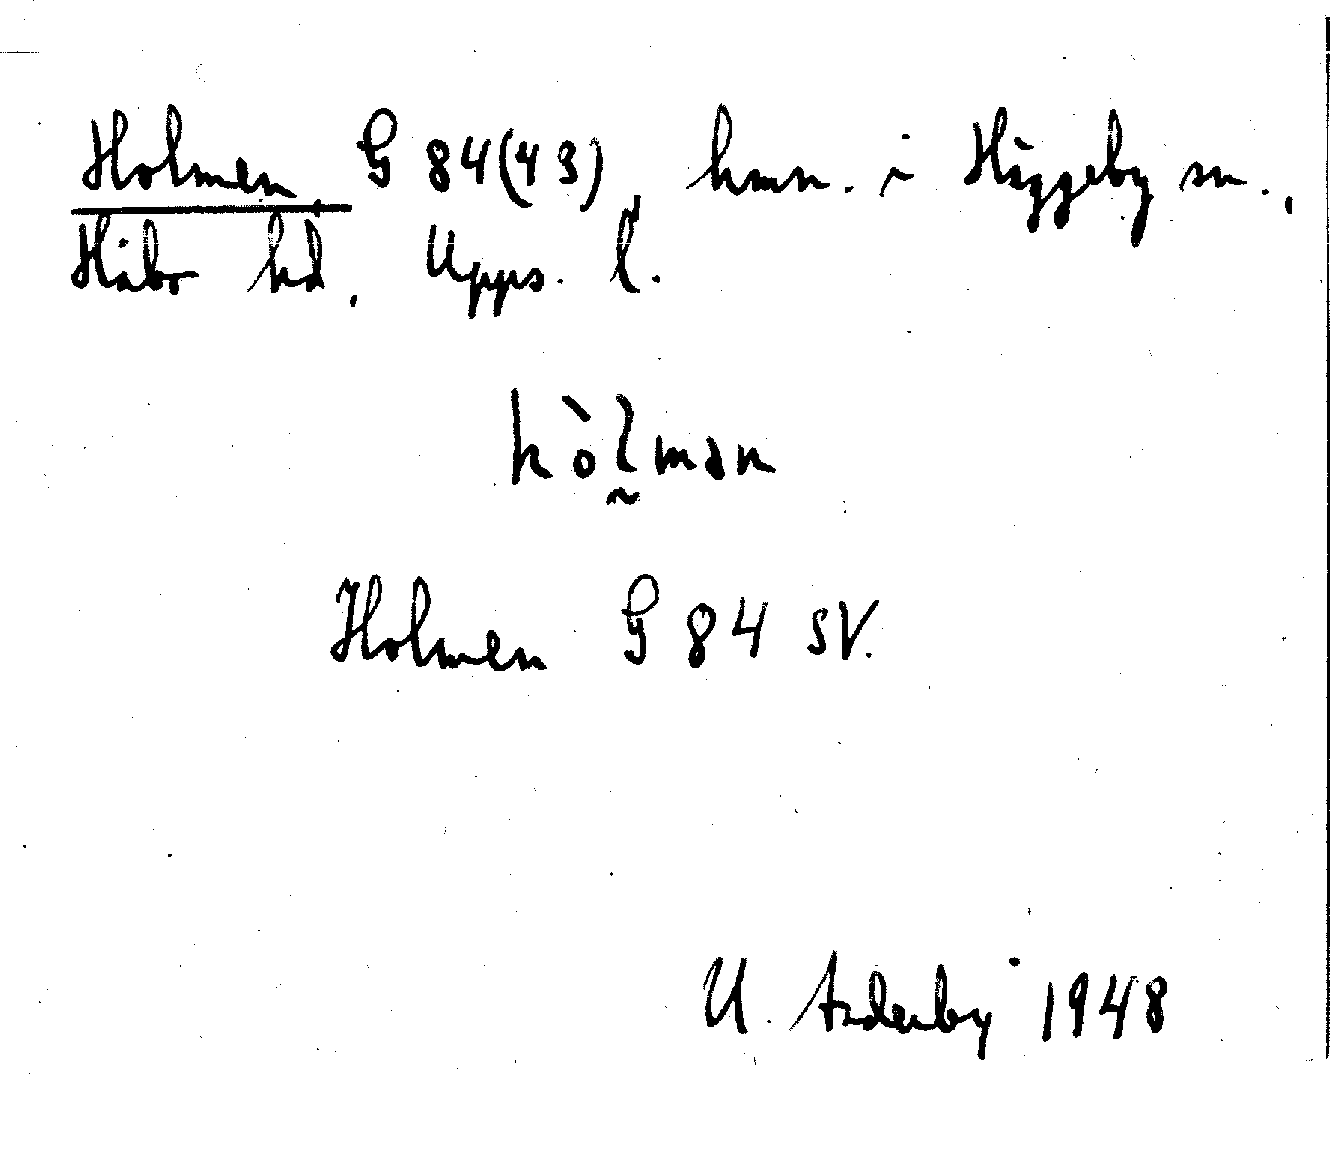 Holmen G 84(43), hmn. i Häggeby sn.,
Håbo hd, Upps. l.
hòlmən
Holmen G 84 SV.
U. Arderby 1948